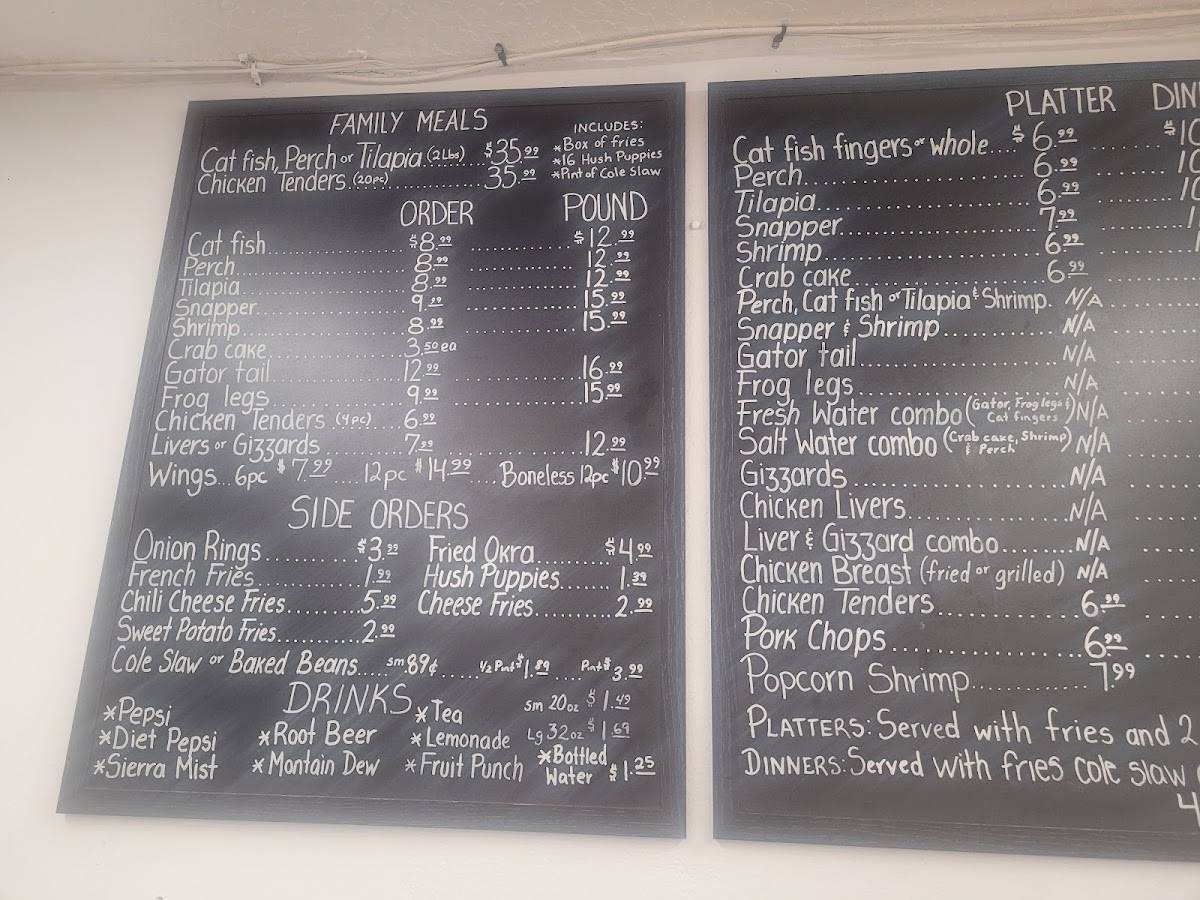 FAMILY MEALS
INCLUDES:
Cat fish, Perch or Tilapia (2 Lbs) ..... $35.99
*Box of fries
*16 Hush Puppies
Chicken Tenders (20pc) ..... 35.99
*Pint of Cole Slaw
ORDER POUND
Cat fish ..... $8.99 ..... $12.99
Perch ..... 8.99 ..... 12.99
Tilapia ..... 8.99 ..... 12.99
Snapper ..... 9.99 ..... 15.99
Shrimp ..... 8.99 ..... 15.99
Crab cake ..... 3.50 ea
Gator tail ..... 12.99 ..... 16.99
Frog legs ..... 9.99 ..... 15.99
Chicken Tenders (4pc) ..... 6.99
Livers or Gizzards ..... 7.99 ..... 12.99
Wings... 6pc $7.99 .... 12pc $14.99 .... Boneless 12pc $10.99
SIDE ORDERS
Onion Rings ..... $3.99 Fried Okra ..... $4.99
French Fries ..... 1.99 Hush Puppies ..... 1.39
Chili Cheese Fries ..... 5.99 Cheese Fries ..... 2.99
Sweet Potato Fries ..... 2.99
Cole Slaw or Baked Beans .... sm 89¢ ..... 1/2 Pint $1.89 .... Pint $3.99
DRINKS
*Pepsi *Tea sm 20oz $1.49
*Diet Pepsi *Root Beer *Lemonade Lg 32oz $1.69
*Sierra Mist *Montain Dew *Fruit Punch *Bottled Water $1.25
PLATTER DIN
Cat fish fingers or whole .... $6.99 $10
Perch ..... 6.99 ..... 10
Tilapia ..... 6.99 ..... 10
Snapper ..... 7.99
Shrimp ..... 6.99
Crab cake ..... 6.99
Perch, Cat fish or Tilapia & Shrimp. N/A
Snapper & Shrimp ..... N/A
Gator tail ..... N/A
Frog legs ..... N/A
Fresh Water combo (Gator, Frog legs & Cat fingers) N/A
Salt Water combo (Crab cake, Shrimp & Perch) N/A
Gizzards ..... N/A
Chicken Livers ..... N/A
Liver & Gizzard combo ..... N/A
Chicken Breast (fried or grilled) N/A
Chicken Tenders ..... 6.99
Pork Chops ..... 6.99
Popcorn Shrimp ..... 7.99
PLATTERS: Served with fries and 2
DINNERS: Served with fries cole slaw
4